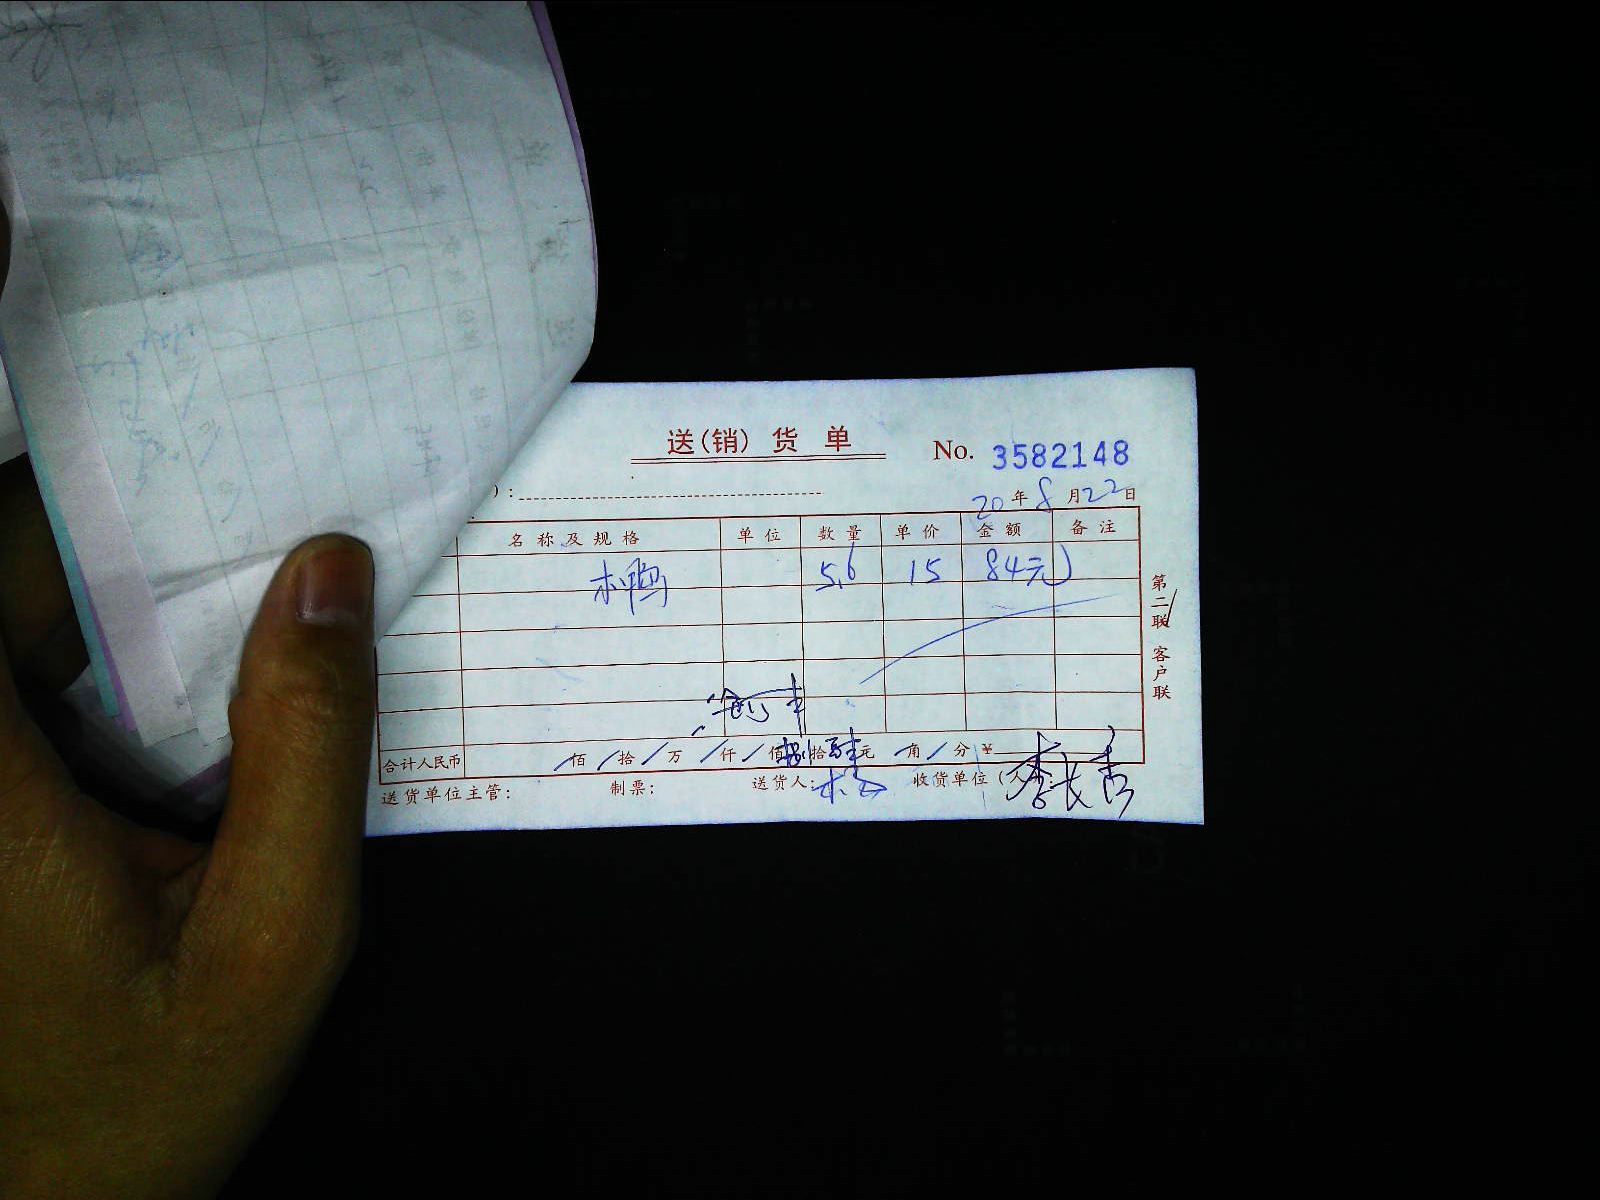 送(销)货单
No. 3582148
20年8月22日
名称及规格 单位 数量 单价 金额 备注
水鸭 5.6 15 84元
第二联 客户联
合计人民币 佰 拾 万 仟 佰 捌拾 肆元 角 分 ¥
送货单位主管: 制票: 送货人: 收货单位(人):